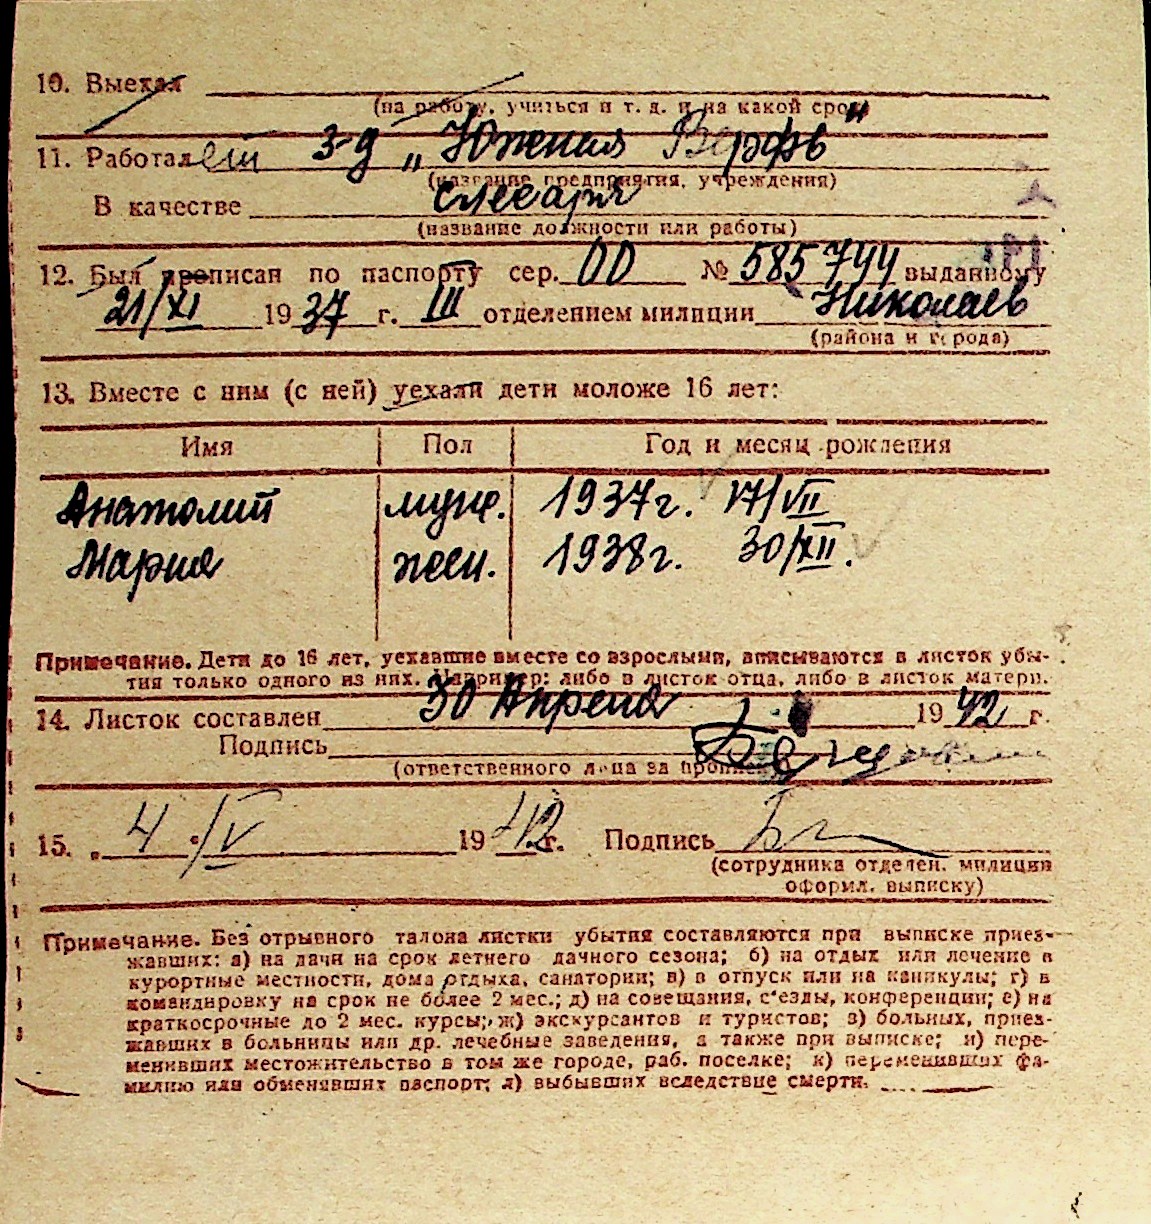 10. Выехал
(на работу, учиться и т. д. и на какой срок)
11. Работает з-д „Южная Верфь"
(название предприятия, учреждения)
В качестве слесаря
(название должности или работы)
12. Был прописан по паспорту сер. ОО № 585744 выданному
21/XI 1937 г. III отделением милиции Николаев
(района и города)
13. Вместе с ним (с ней) уехали дети моложе 16 лет:
Имя Пол Год и месяц рождения
Анатолий муж. 1937г. 17/VII
Мария жен. 1938г. 30/XII.
Примечание. Дети до 16 лет, уехавшие вместе со взрослыми, вписываются в листок убы-
тия только одного из них. Например: либо в листок отца, либо в листок матери.
14. Листок составлен 30 Апреля 1942 г.
Подпись
(ответственного лица за прописку)
15. „ 4 " / V 1942 г. Подпись
(сотрудника отделен. милиции
оформл. выписку)
Примечание. Без отрывного талона листки убытия составляются при выписке приез-
жавших: а) на дачи на срок летнего дачного сезона; б) на отдых или лечение в
курортные местности, дома отдыха, санатории; в) в отпуск или на каникулы; г) в
командировку на срок не более 2 мес.; д) на совещания, с'езды, конференции; е) на
краткосрочные до 2 мес. курсы; ж) экскурсантов и туристов; з) больных, приез-
жавших в больницы или др. лечебные заведения, а также при выписке; и) пере-
менивших местожительство в том же городе, раб. поселке; к) переменивших фа-
милию или обменявших паспорт; л) выбывших вследствие смерти.